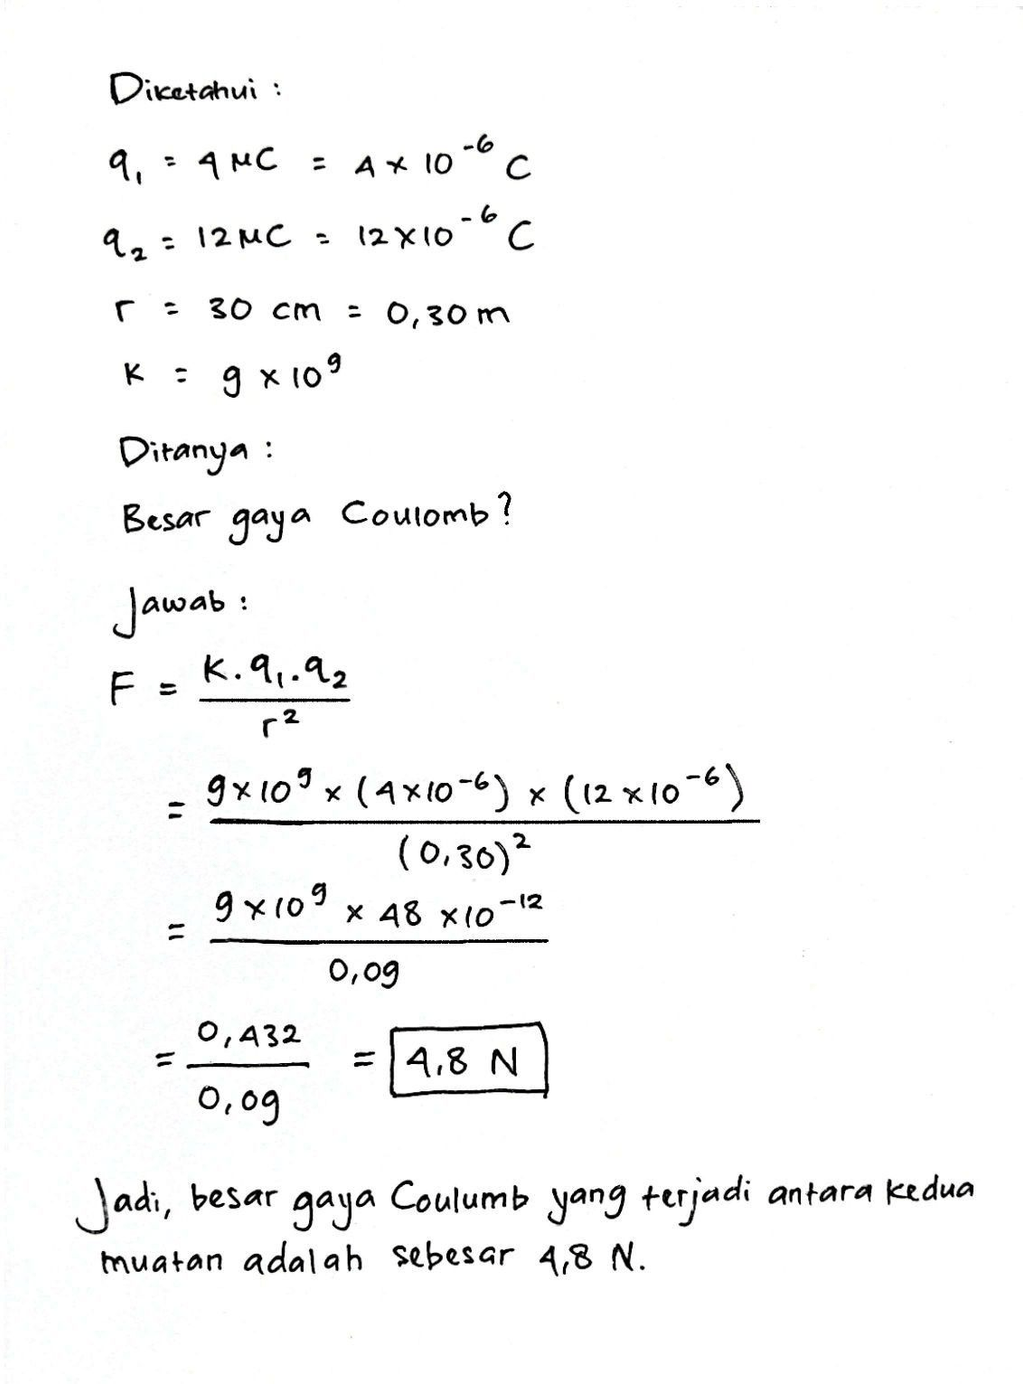 Diketahui :
q₁ = 4 μC = 4 × 10⁻⁶ C
q₂ = 12 μC = 12 × 10⁻⁶ C
r = 30 cm = 0,30 m
K = 9 × 10⁹
Ditanya :
Besar gaya Coulomb?
Jawab :
F = K . q₁ . q₂
r²
= 9 × 10⁹ × (4 × 10⁻⁶) × (12 × 10⁻⁶)
(0,30)²
= 9 × 10⁹ × 48 × 10⁻¹²
0,09
= 0,432 = 4,8 N
0,09
Jadi, besar gaya Coulumb yang terjadi antara kedua
muatan adalah sebesar 4,8 N.